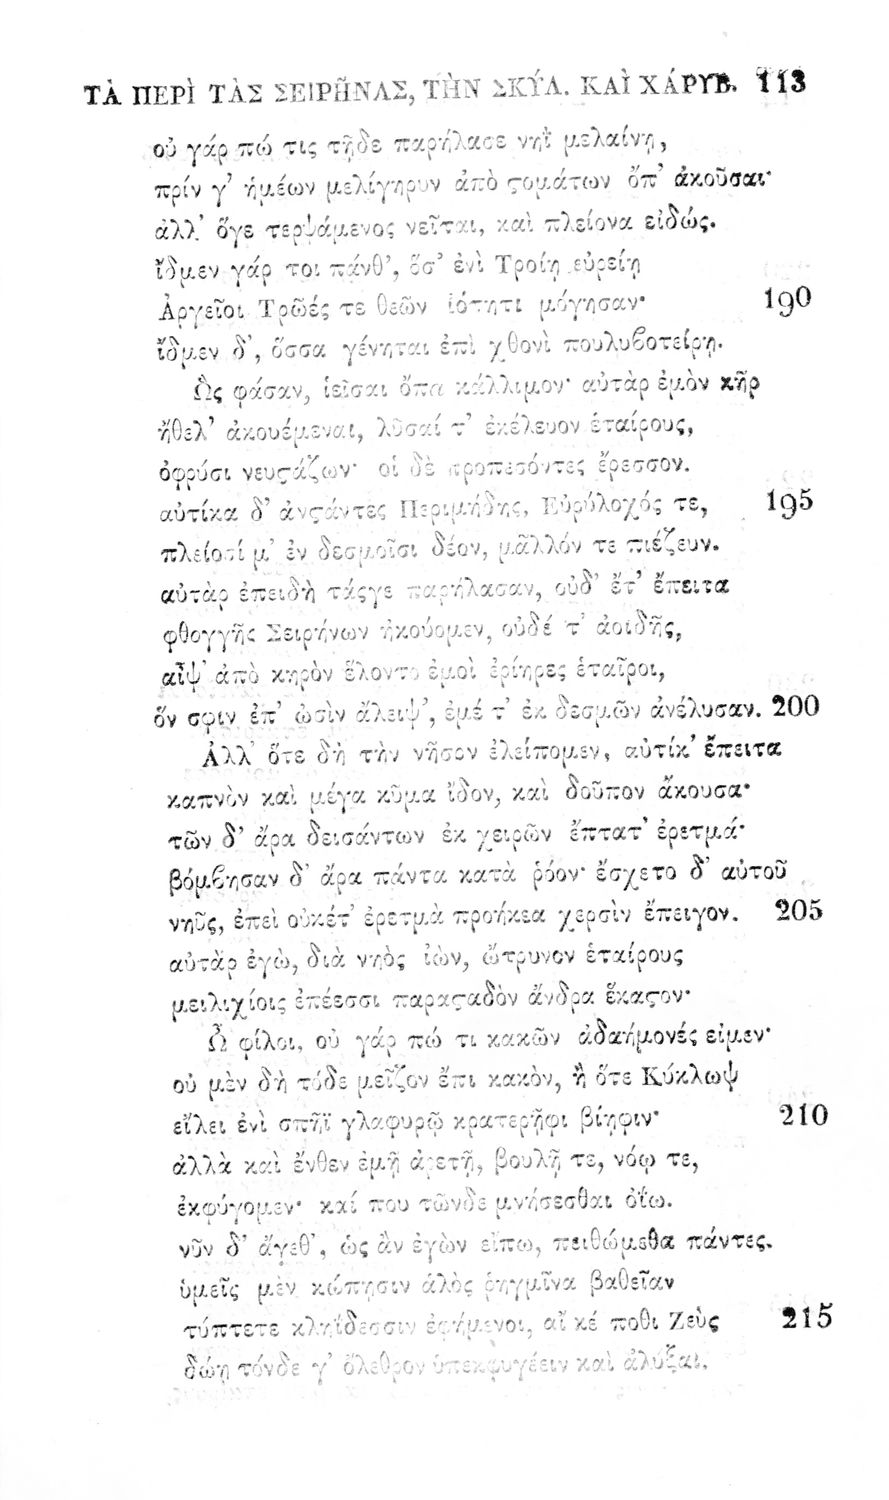 ΤᾺ ΠΕΡῚ ΤᾺΣ ΣΕΙΡΗ͂ΝΑΣ, ΤῊΝ ΣΚΎΛ. ΚΑῚ ΧΆΡΥΒ. 113
οὐ γάρ πώ τις τῇδε παρήλασε νηῒ μελαίνῃ,
πρίν γ’ ἡμέων μελίγηρυν ἀπὸ ϛομάτων ὄπ’ ἀκοῦσαι·
ἀλλ’ ὅγε τερψάμενος νεῖται, καὶ πλείονα εἰδώς.
ἴδμεν γάρ τοι πάνθ’, ὅσ’ ἐνὶ Τροίῃ εὐρείῃ
Ἀργεῖοι Τρῶές τε θεῶν ἰότητι μόγησαν· 190
ἴδμεν δ’, ὅσσα γένηται ἐπὶ χθονὶ πουλυβοτείρῃ.
Ὣς φάσαν, ἱεῖσαι ὄπα κάλλιμον· αὐτὰρ ἐμὸν κῆρ
ἤθελ’ ἀκουέμεναι, λῦσαί τ’ ἐκέλευον ἑταίρους,
ὀφρύσι νευϛάζων· οἱ δὲ προπεσόντες ἔρεσσον.
αὐτίκα δ’ ἀνϛάντες Περιμήδης, Εὐρύλοχός τε, 195
πλείοσί μ’ ἐν δεσμοῖσι δέον, μᾶλλόν τε πιέζευν.
αὐτὰρ ἐπειδὴ τάςγε παρήλασαν, οὐδ’ ἔτ’ ἔπειτα
φθογγῆς Σειρήνων ἠκούομεν, οὐδέ τ’ ἀοιδῆς,
αἶψ’ ἀπὸ κηρὸν ἕλοντο ἐμοὶ ἐρίηρες ἑταῖροι,
ὅν σφιν ἐπ’ ὠσὶν ἄλειψ’, ἐμέ τ’ ἐκ δεσμῶν ἀνέλυσαν. 200
Ἀλλ’ ὅτε δὴ τὴν νῆσον ἐλείπομεν, αὐτίκ’ ἔπειτα
καπνὸν καὶ μέγα κῦμα ἴδον, καὶ δοῦπον ἄκουσα·
τῶν δ’ ἄρα δεισάντων ἐκ χειρῶν ἔπτατ’ ἐρετμά·
βόμβησαν δ’ ἄρα πάντα κατὰ ῥόον· ἔσχετο δ’ αὐτοῦ
νηῦς, ἐπεὶ οὐκέτ’ ἐρετμὰ προήκεα χερσὶν ἔπειγον. 205
αὐτὰρ ἐγὼ, διὰ νηὸς ἰὼν, ὤτρυνον ἑταίρους
μειλιχίοις ἐπέεσσι παραϛαδὸν ἄνδρα ἕκαϛον·
Ὦ φίλοι, οὐ γάρ πώ τι κακῶν ἀδαήμονές εἰμεν·
οὐ μὲν δὴ τόδε μεῖζον ἔπι κακὸν, ἢ ὅτε Κύκλωψ
εἴλει ἐνὶ σπῆϊ γλαφυρῷ κρατερῆφι βίηφιν· 210
ἀλλὰ καὶ ἔνθεν ἐμῇ ἀρετῇ, βουλῇ τε, νόῳ τε,
ἐκφύγομεν· καί που τῶνδε μνήσεσθαι ὀΐω.
νῦν δ’ ἄγεθ’, ὡς ἂν ἐγὼν εἴπω, πειθώμεθα πάντες.
ὑμεῖς μὲν κώπῃσιν ἁλὸς ῥηγμῖνα βαθεῖαν
τύπτετε κληΐδεσσιν ἐφήμενοι, αἴ κέ ποθι Ζεὺς 215
δώῃ τόνδε γ’ ὄλεθρον ὑπεκφυγέειν καὶ ἀλύξαι.